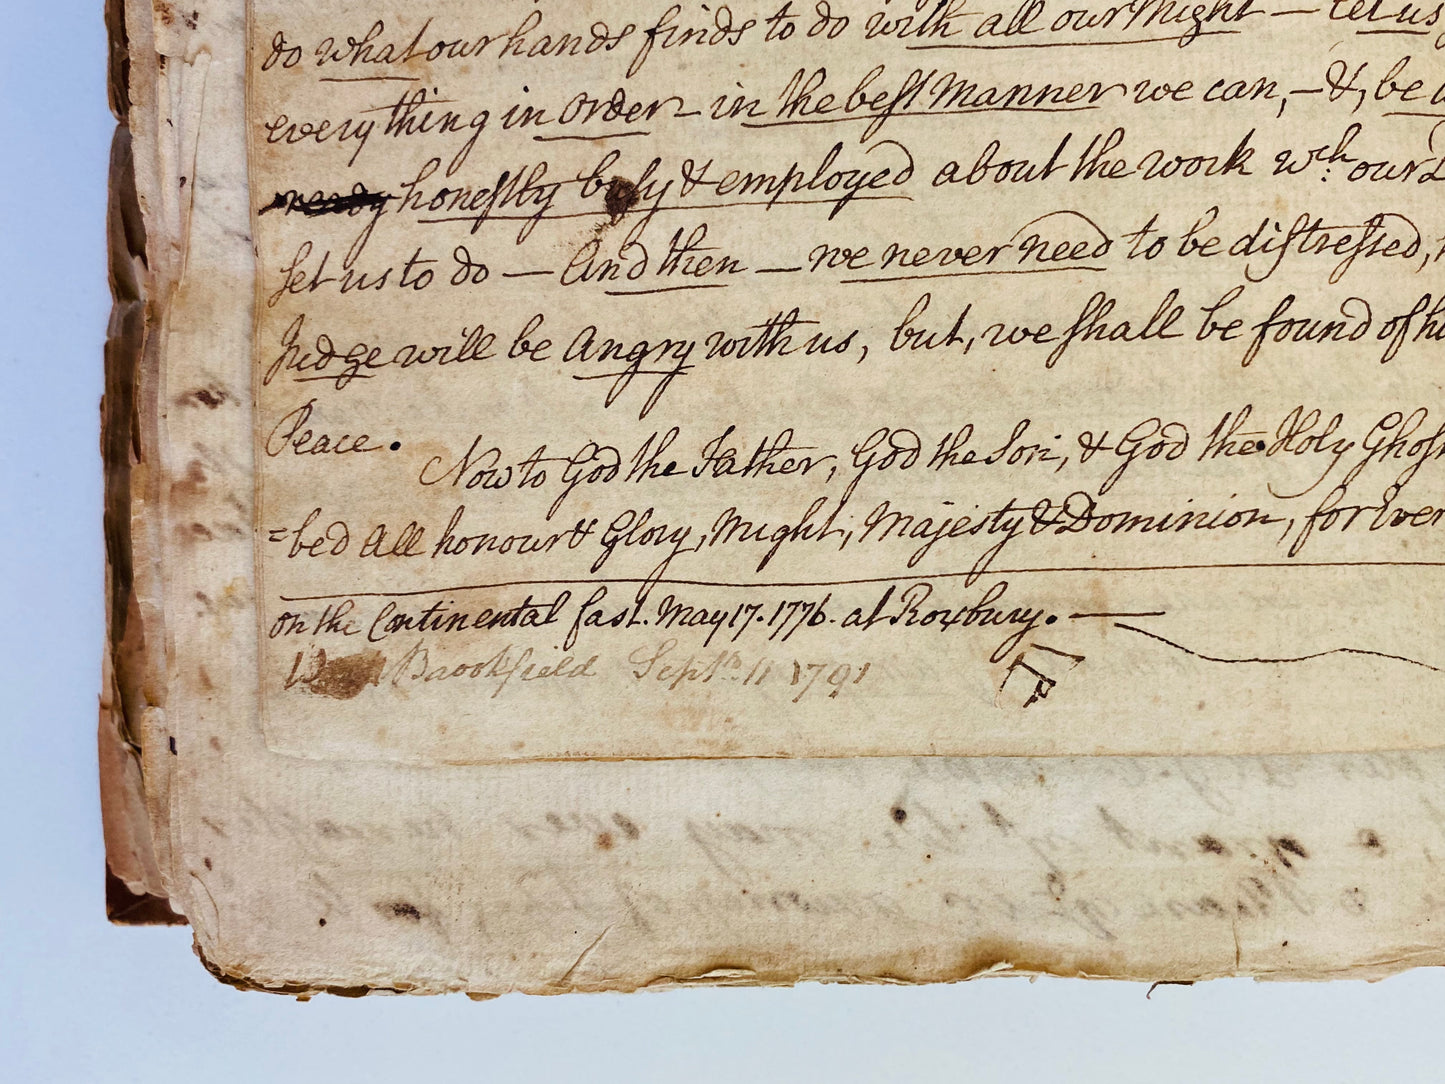 do what our hands finds to do with all our Might — Let us
everything in Order – in the best Manner we can, – &, be
ready honestly busy & employed about the work wch: our
set us to do — And then — we never need to be distressed,
Judge will be Angry with us, but, we shall be found of
Peace.
Now to God the Father, God the Son, & God the Holy Ghos
=bed All honour & Glory, Might, Majesty & Dominion, for Ever
on the Continental fast. May 17. 1776. at Roxbury. —
Brookfield Sept. 11 1791